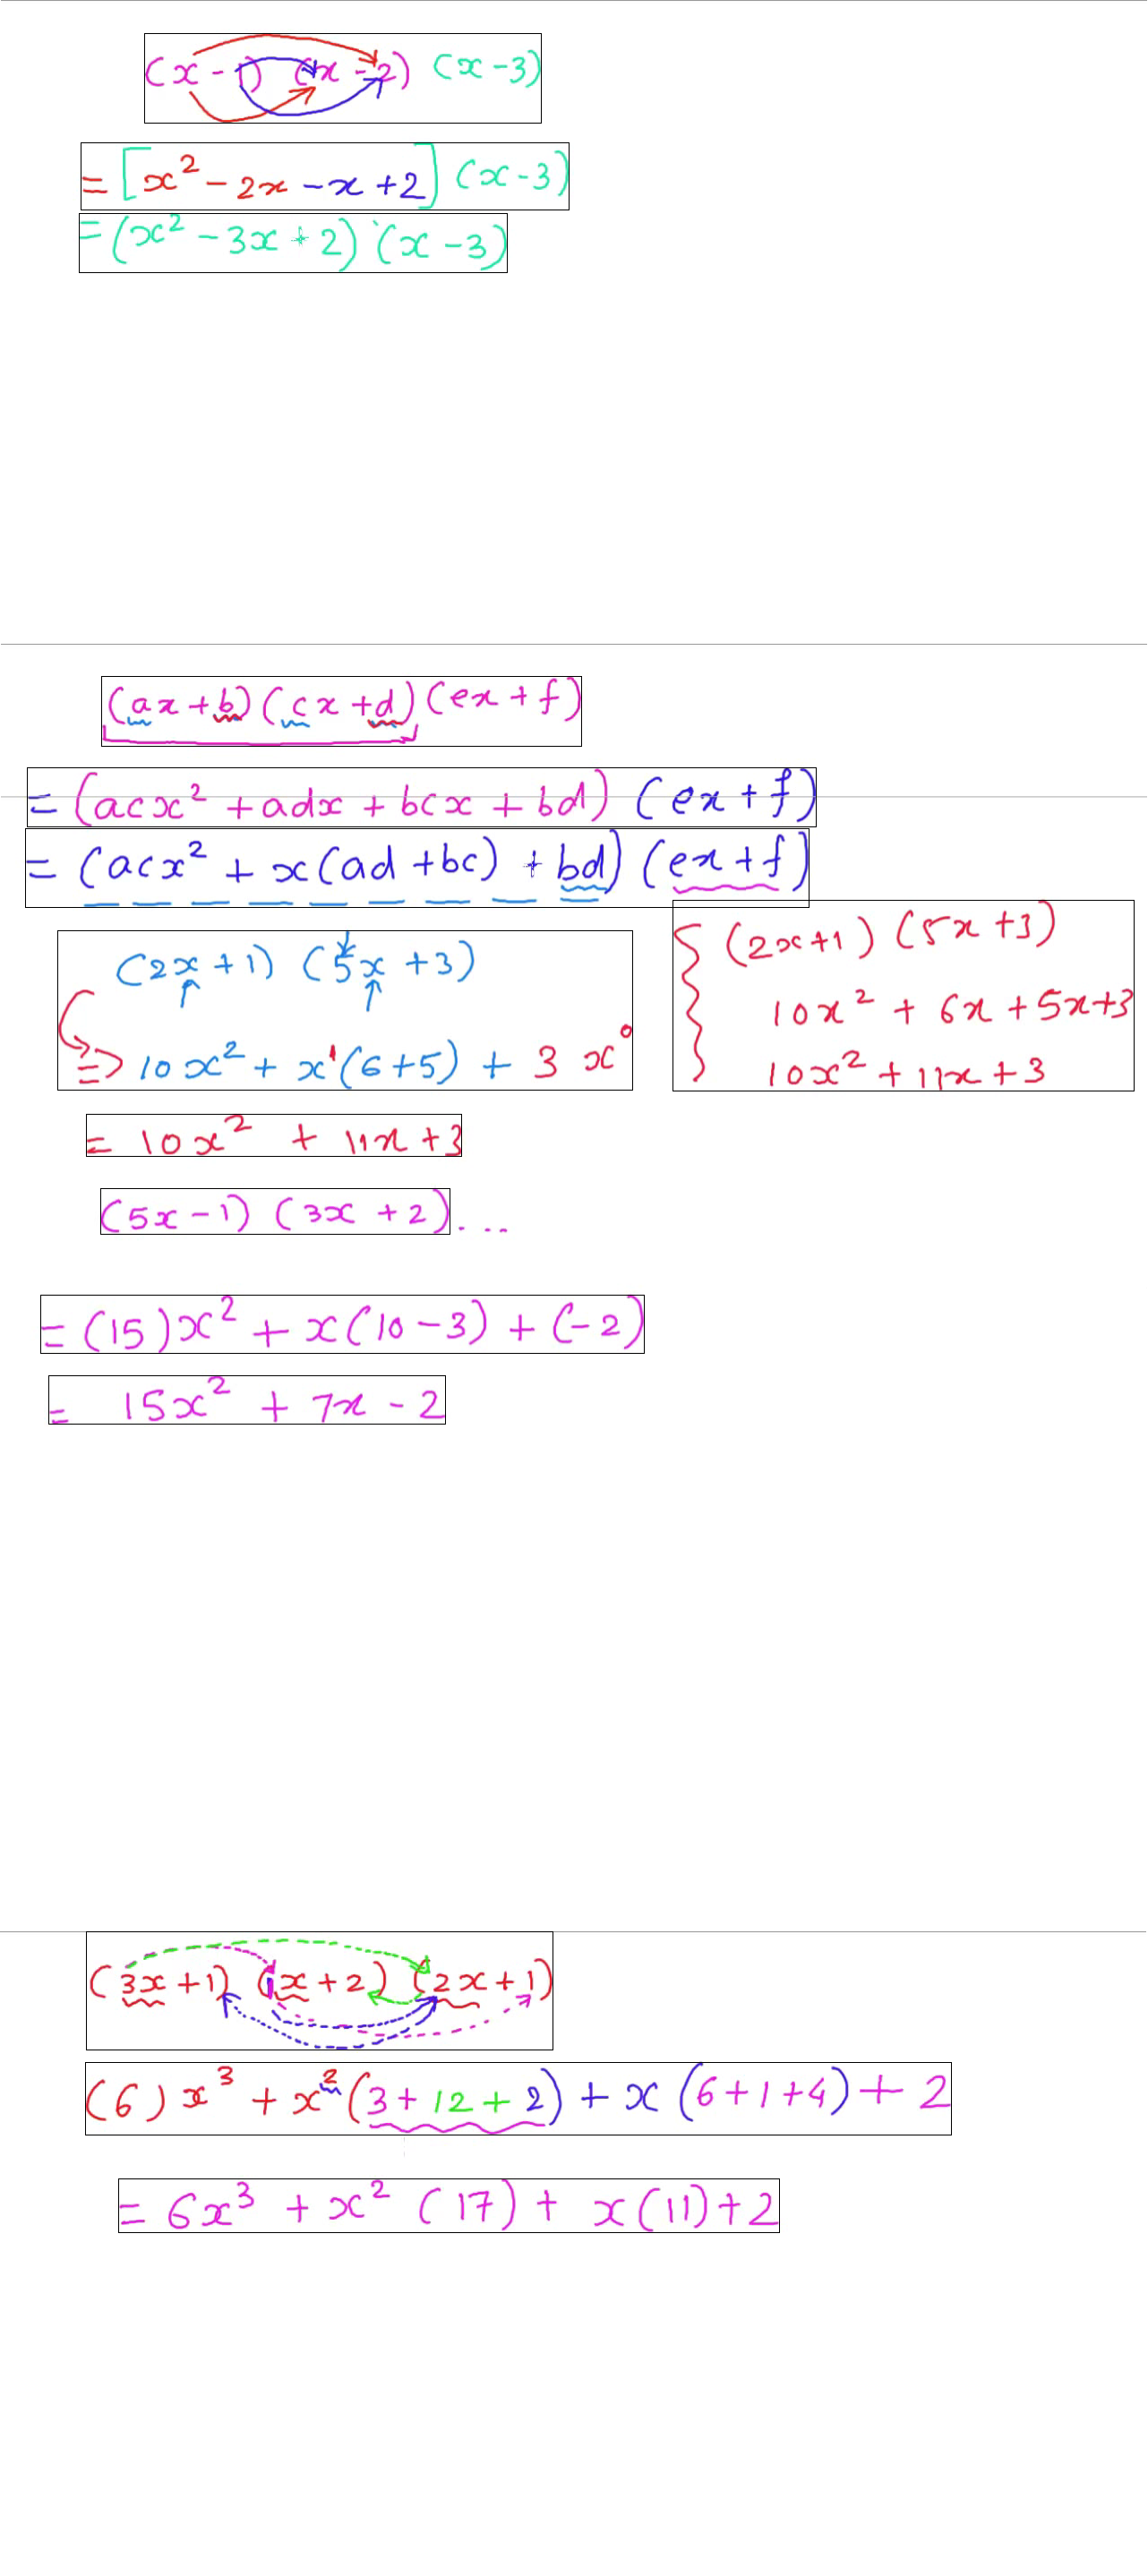 (x - 1) (x - 2) (x - 3)
= [x² - 2x - x + 2] (x - 3)
= (x² - 3x + 2) (x - 3)
(ax + b) (cx + d) (ex + f)
= (acx² + adx + bcx + bd) (ex + f)
= (acx² + x(ad + bc) + bd) (ex + f)
(2x + 1) (5x + 3)
⇒ 10x² + x¹(6 + 5) + 3 x⁰
{ (2x + 1) (5x + 3)
10x² + 6x + 5x + 3
10x² + 11x + 3
= 10x² + 11x + 3
(5x - 1) (3x + 2) ...
= (15)x² + x(10 - 3) + (-2)
= 15x² + 7x - 2
(3x + 1) (1x + 2) (2x + 1)
(6)x³ + x²(3 + 12 + 2) + x(6 + 1 + 4) + 2
= 6x³ + x² (17) + x(11) + 2